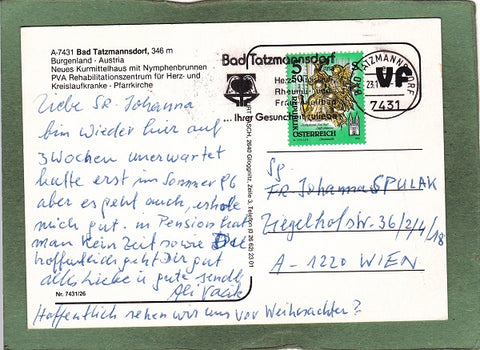 A-7431 Bad Tatzmannsdorf, 346 m
Burgenland · Austria
Neues Kurmittelhaus mit Nymphenbrunnen
PVA Rehabilitationszentrum für Herz- und
Kreislaufkranke · Pfarrkirche
Liebe Sr. Johanna
bin wieder hier auf
3 Wochen unerwartet
hatte erst im Sommer 96
aber es geht auch, erhole
mich gut. in Pension hat
man kein Zeit sowie Du
hoffentlich geht Dir gut
alles Liebe u gute sendet
Hoffentlich sehen wir uns vor Weihnachten?
Nr. 7431/26
2640 Gloggnitz, Zeile 3, Telefon (0 26 62) 23 01
Bad Tatzmannsdorf
Herz
Rheuma und
Frauenheilbad
... Ihrer Gesundheit zuliebe
5 50
REPUBLIK
ÖSTERREICH
BAD TATZMANNSDORF
7431
Sg
Fr. Johanna SPULAK
Ziegelhofstr. 36/2/4/18
A-1220 WIEN